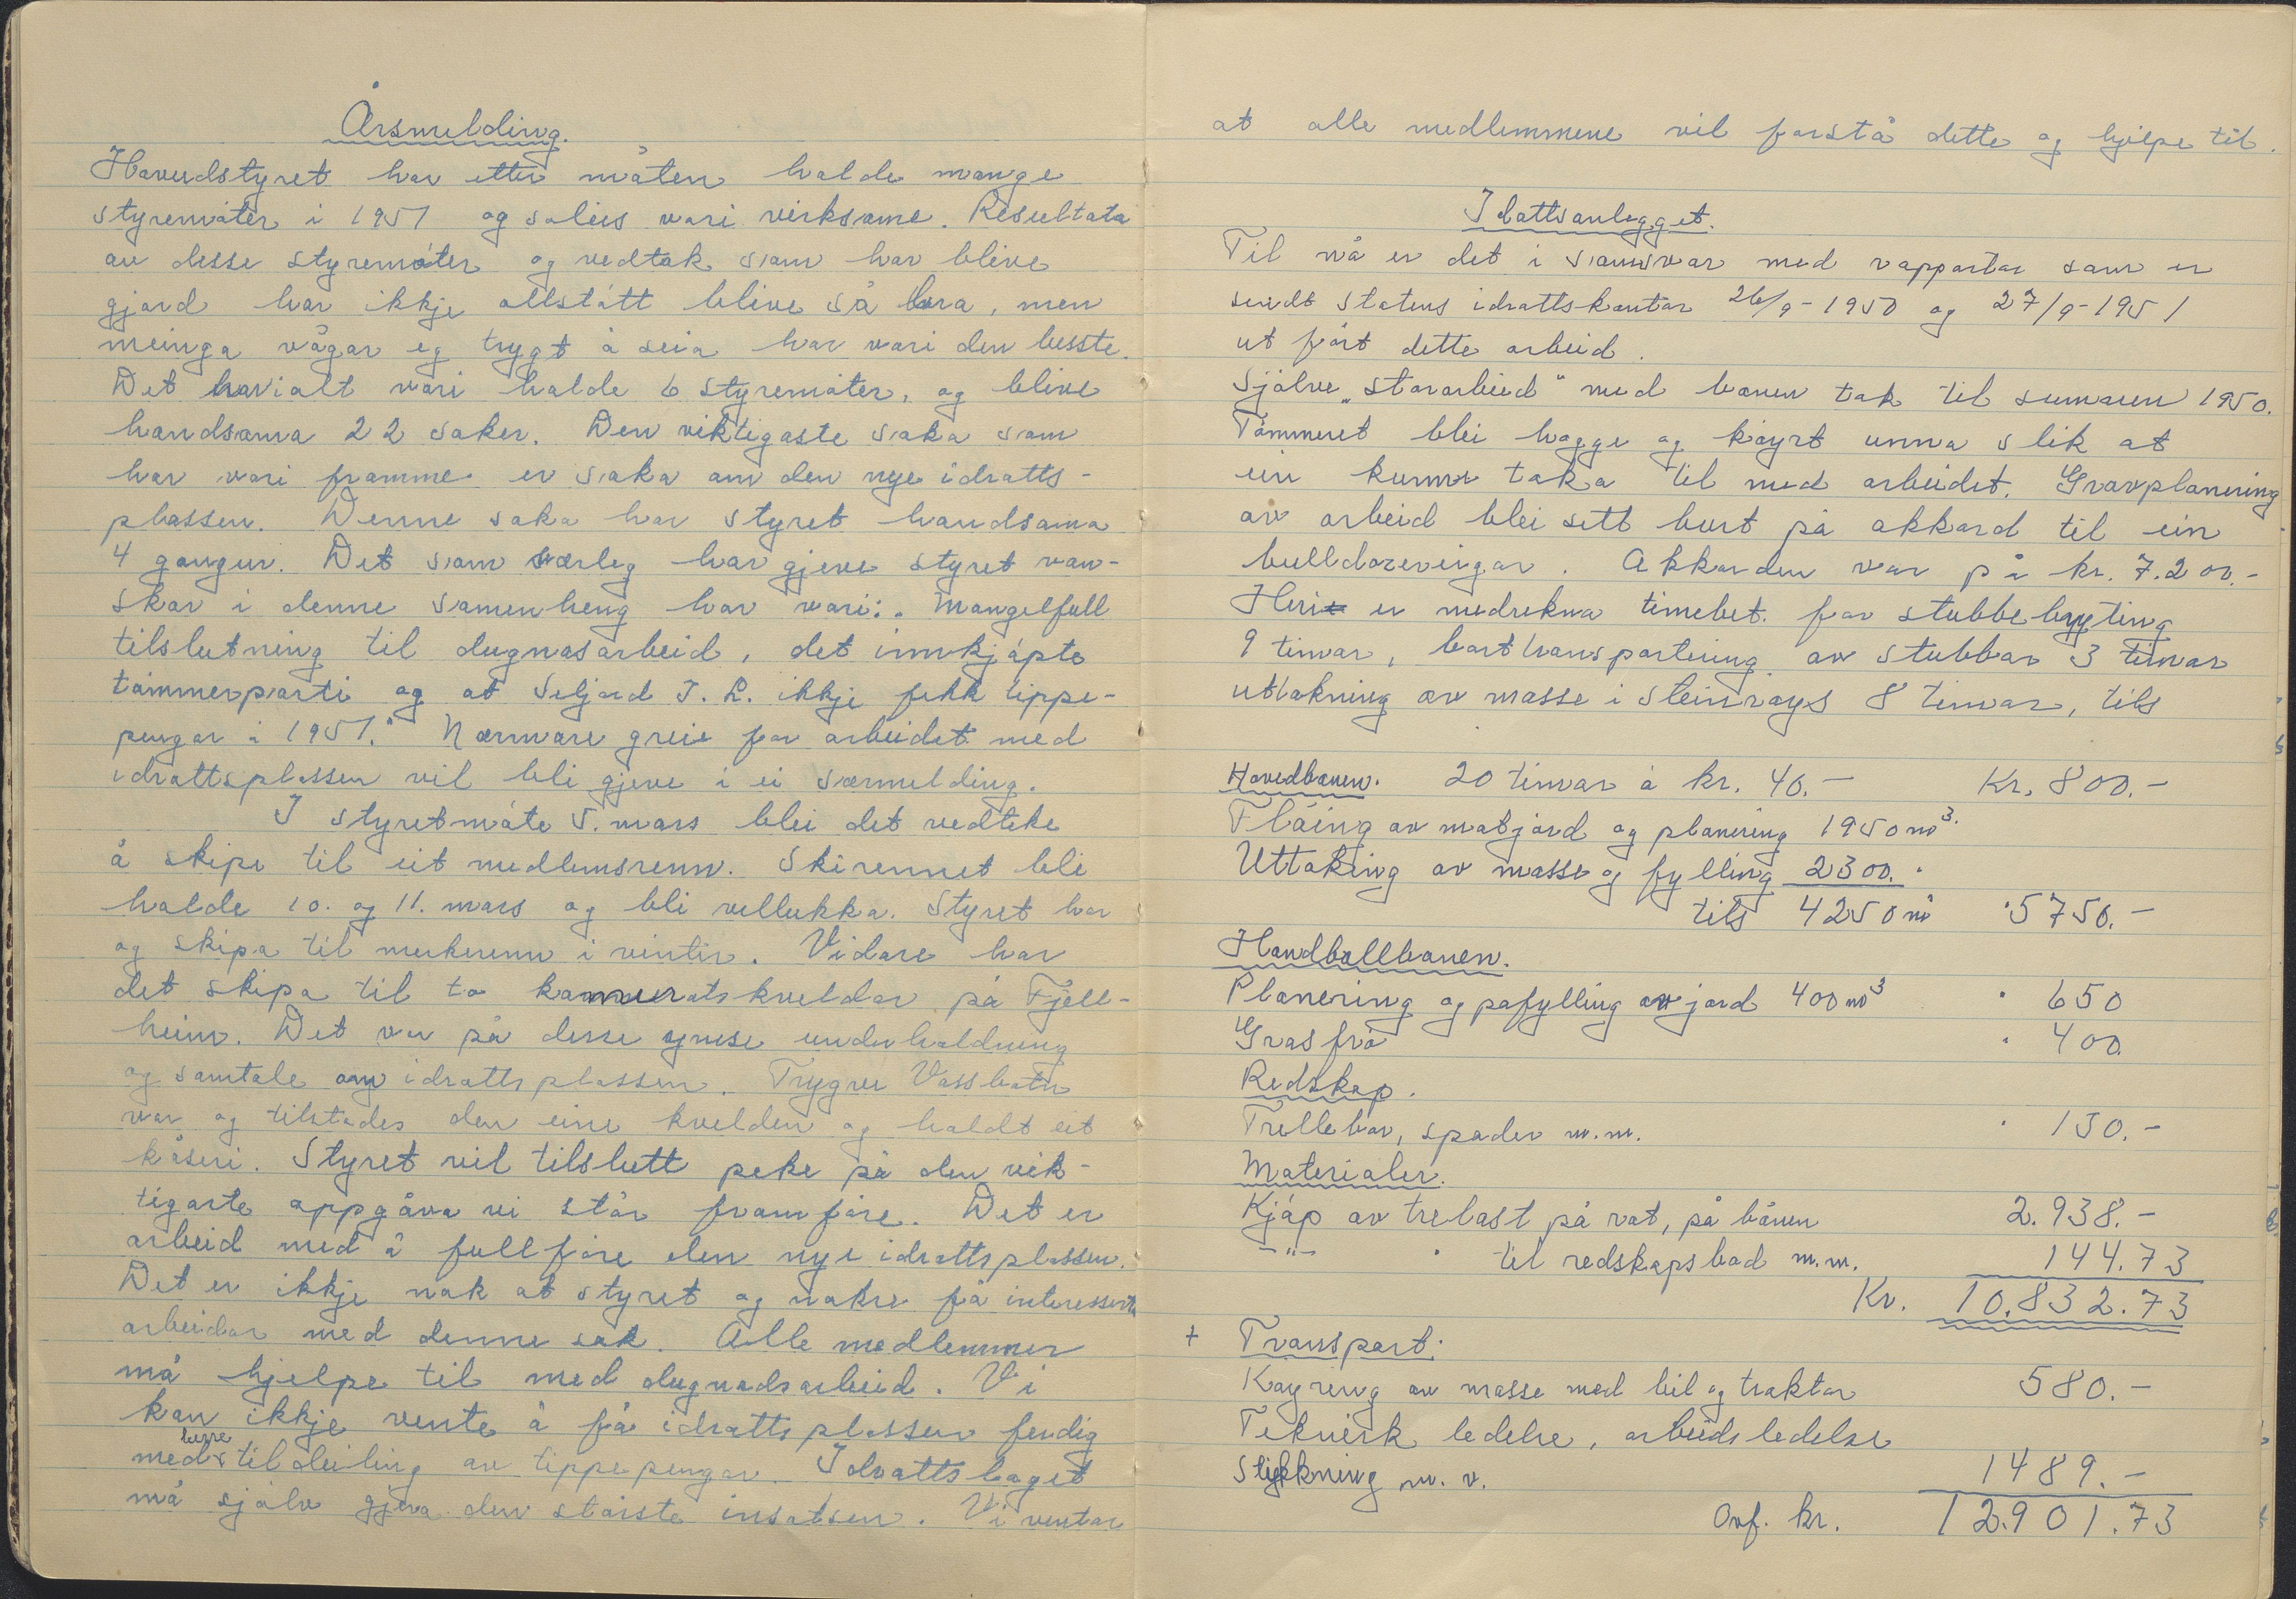 Årsmelding.
Hovudstyret har etter måten halde mange
styremöter i 1951 og soleis vori verksame. Resultata
av desse styremöter og vedtak som har blive
gjord har ikkje alltstött blive så bra, men
meinga vågar eg trygt å seia har vori den beste.
Det har ialt vori halde 6 styremöter, og blive
handsama 22 saker. Den viktigaste saka som
har vori framme er saka om den nye idratts-
plassen. Denne saka har styret handsama
4 gonger. Det som særleg har gjeve styret van-
skar i denne samenheng har vori: „Mangelfull
tilslutning til dugnasarbeid, det innkjöpte
tömmerparti og at Seljord I. L. ikkje fekk tippe-
pengar i 1951." Nærmare greie for arbeidet med
idrottsplassen vil bli gjeve i ei særmelding.
I styretmöte 5. mars blei det vedteke
å skipe til eit medlemsrenn. Skirennet blei
halde 10. og 11. mars og blei vellukka. Styret har
og skipa til merkerenn i vinter. Vidare har
det skipa til to kameratskveldar på Fjell-
heim. Det var på desse ymse underholdning
og samtale om idrattsplassen. Trygve Vassbotn
var og tilstades den eine kvelden og heldt eit
kåseri. Styret vil tilslutt peke på den vik-
tigaste oppgåva vi står framföre. Det er
arbeid med å fullföre den nye idrattsplassen.
Det er ikkje nok at styret og nokre få interesserte
arbeidar med denne sak. Alle medlemmer
må hjelpe til med dugnadsarbeid. Vi
kan ikkje vente å få idrattsplassen ferdig
med berre tildeiling av tippepengar. Idrattslaget
må sjölv gjeva den störste insatsen. Vi ventar
at alle medlemmene vil forstå dette og hjelpe til.
Idattsanlegget.
Til nå er det i samsvar med rapportar som er
sendt statens idrattskontor 26/9-1950 og 27/9-1951
utfört dette arbeid.
Sjölve „stararbeid" med banen tok til sumaren 1950.
Tömmeret blei hogge og köyrt unna slik at
ein kunne taka til med arbeidet. Grovplanering
av arbeid blei sett burt på akkord til ein
bulldozereigar. Akkorden var på kr. 7.200.-
Heri er medrekna timebet. for stubbebryting
9 timar, borttransportering av stubbar 3 timar
uttakning av masse i steinröys 8 timar, tils
Hovedbanen. 20 timar à kr. 40.- Kr. 800.-
Flåing av matjord og planering 1950 m³.
Uttaking av masse og fylling 2300. "
tils 4250 m³ " 5750.-
Handballbanen.
Planering og påfylling av jord 400 m³ " 650
Grasfrö " 400
Redskap.
Trillebör, spader m.m. " 150.-
Materialer.
Kjöp av trelast på rot, på bånen 2.938.-
-"- " til redskapsbod m.m. 144.73
Kr. 10.832.73
+ Transport:
Köyring av masse med bil og traktor 580.-
Teknisk ledelse, arbeidsledelse
Stykkning m. v. 1489.-
Ovf. kr. 12.901.73